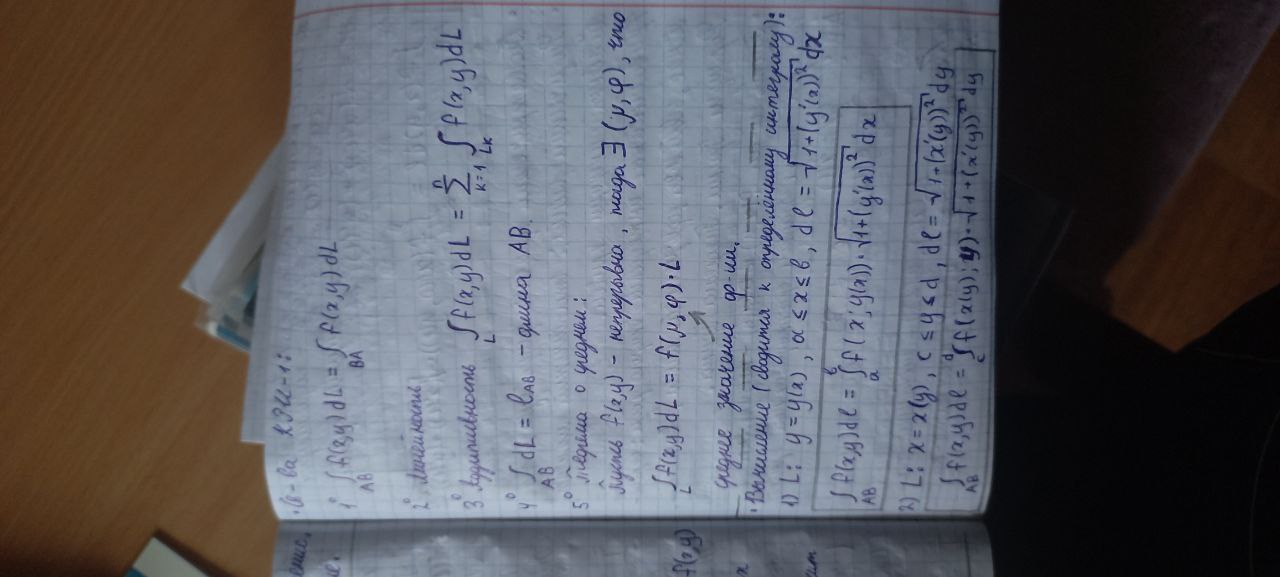 • Св-ва КРИ-1:
1° ∫_{AB} f(x,y)dL = ∫_{BA} f(x,y)dL
2° Линейность
3° Аддитивность ∫_L f(x,y)dL = ∑_{k=1}^{n} ∫_{L_k} f(x,y)dL
4° ∫_{AB} dL = l_{AB} - длина AB.
5° Теорема о среднем:
Пусть f(x,y) - непрерывна, тогда ∃ (μ,φ), что
∫_L f(x,y)dL = f(μ,φ)·L
среднее значение ф-ии.
• Вычисление (сводится к определенному интегралу):
1) L: y = y(x), a ≤ x ≤ b, dl = √(1+(y'(x))²) dx
∫_{AB} f(x,y)dl = ∫_a^b f(x; y(x))·√(1+(y'(x))²) dx
2) L: x = x(y), c ≤ y ≤ d, dl = √(1+(x'(y))²) dy
∫_{AB} f(x,y)dl = ∫_c^d f(x(y); y)·√(1+(x'(y))²) dy
f(x,y)
x